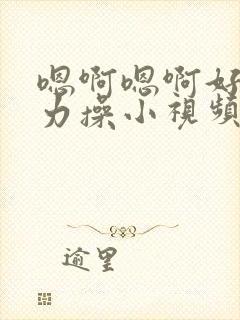 嗯啊嗯啊好
力操小視頻
逾里